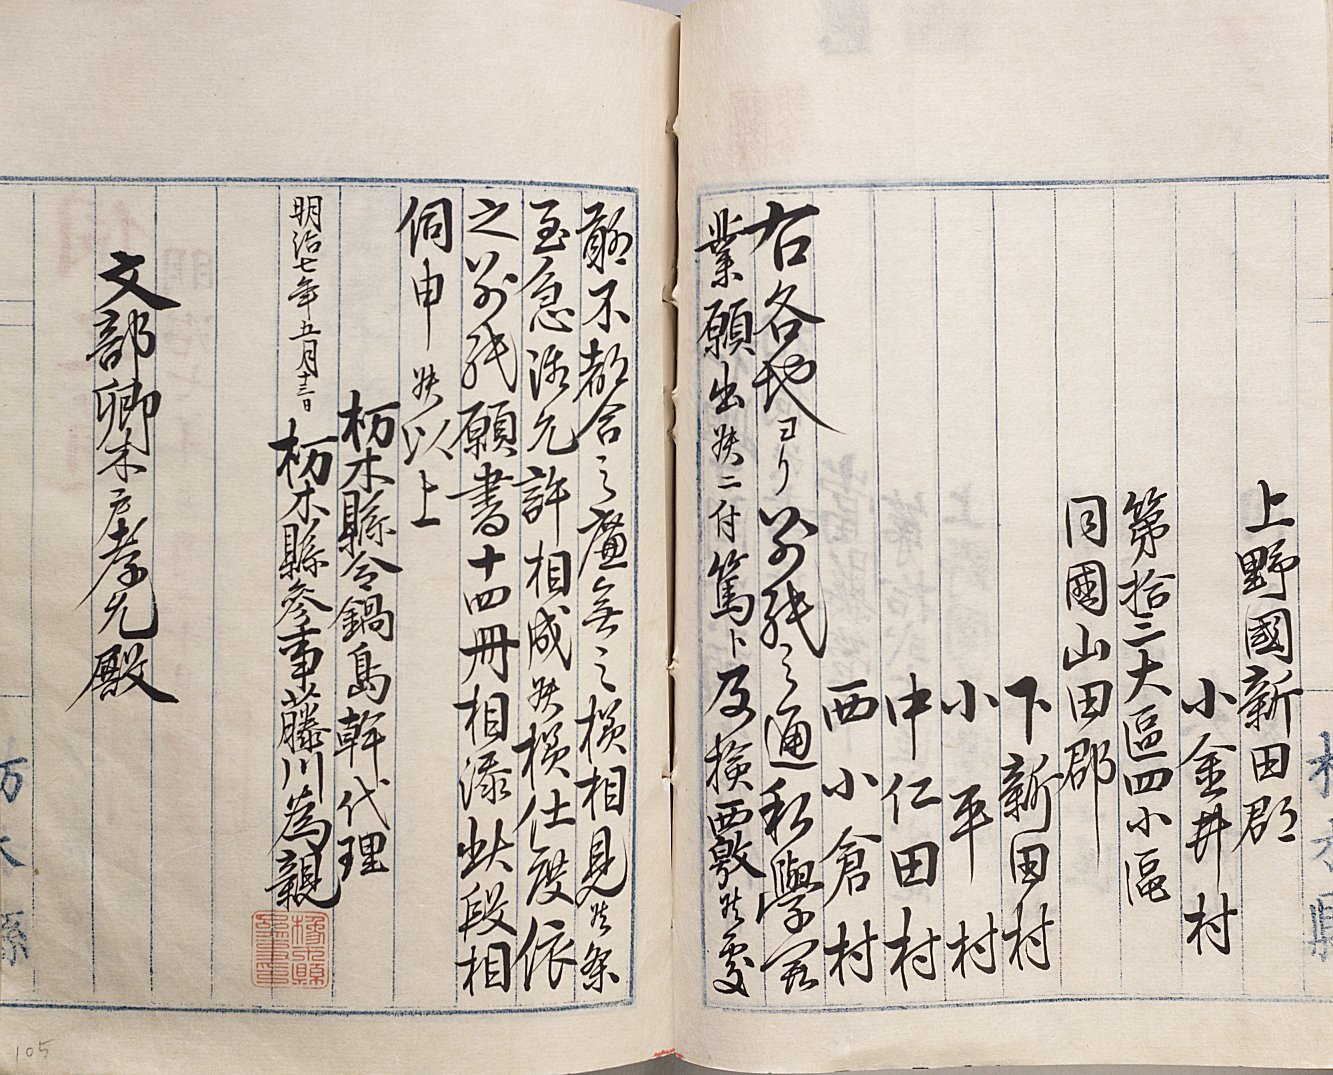 上野國新田郡
小金井村
第拾二大區四小區
同國山田郡
下新田村
小平村
中仁田村
西小倉村
右各地ヨリ別紙之通私學開
業願出候ニ付篤ト及檢覈候處
聊不都合之廉無之樣相見候条
至急御允許相成候樣仕度依
之別紙願書十四冊相添此段相
伺申候以上
栃木縣令鍋島幹代理
明治七年五月十三日 栃木縣參事藤川為親
文部卿木戸孝允殿
栃木縣
105